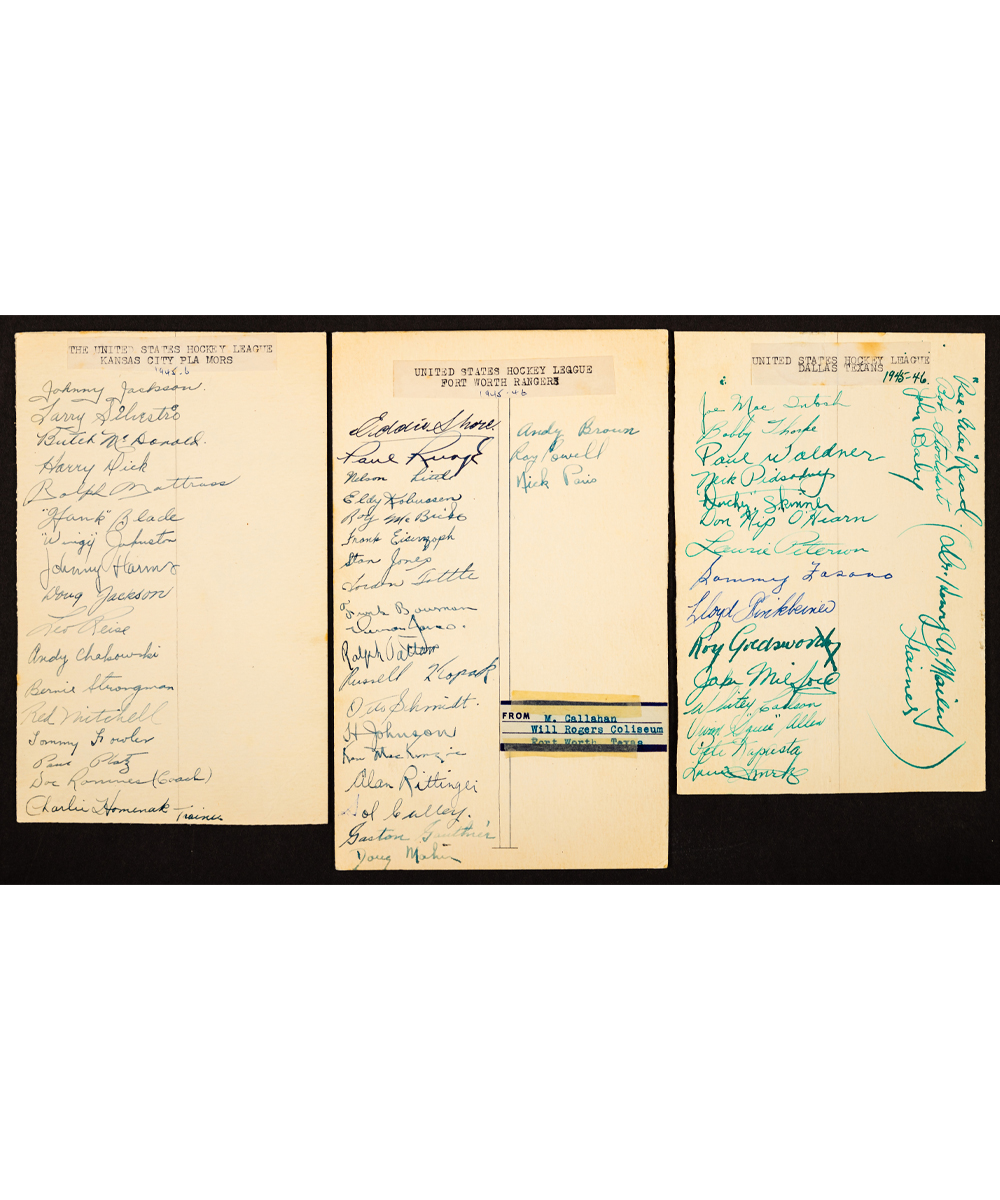 THE UNITED STATES HOCKEY LEAGUE
KANSAS CITY PLA MORS
1945-6
Johnny Jackson.
Larry Silvestro
Butch McDonald.
Harry Dick
Ralph Mattrass
"Hank" Blade
"Wingy" Johnston
Johnny Harms
Doug Jackson
Leo Reise
Andy Chakowski
Bernie Strongman
Red Mitchell
Tommy Fowler
Paul Platz
Doc Romnes (Coach)
Charlie Homenak Trainer
UNITED STATES HOCKEY LEAGUE
FORT WORTH RANGERS
1945-46
Eddie Shore.
Paul Runge
Nelson Little
Eldy Kobussen
Roy McBride
Frank Eisenzoph
Stan Jones
Jordan Tuttle
Frank Bowman
Vernon Jones.
Ralph Pattan
Russell Kopak
Otto Schmidt.
H Johnson
Ken MacKenzie
Alan Rittinger
Sol Culley.
Gaston Gauthier
Doug Mohin
Andy Brown
Ray Powell
Nick Paris
FROM M. Callahan
Will Rogers Coliseum
Fort Worth, Texas
UNITED STATES HOCKEY LEAGUE
DALLAS TEXANS
1945-46.
Joe MacIntosh
Bobby Thorpe
Paul Waldner
Nick Pidsodny
"Duchy" Skinner
Don "Hip" O'Hearn
Laurie Peterson
Sammy Fasano
Lloyd Finkbeiner
Roy Goldsworthy
Jake Milford
Whitey Carlson
Vivan "Squee" Allen
Pete Kapusta
Louis
"Pee-Wee" Read
Bob Stoddart
John Baby
(Dr. Henry W. Mailey
Trainer)